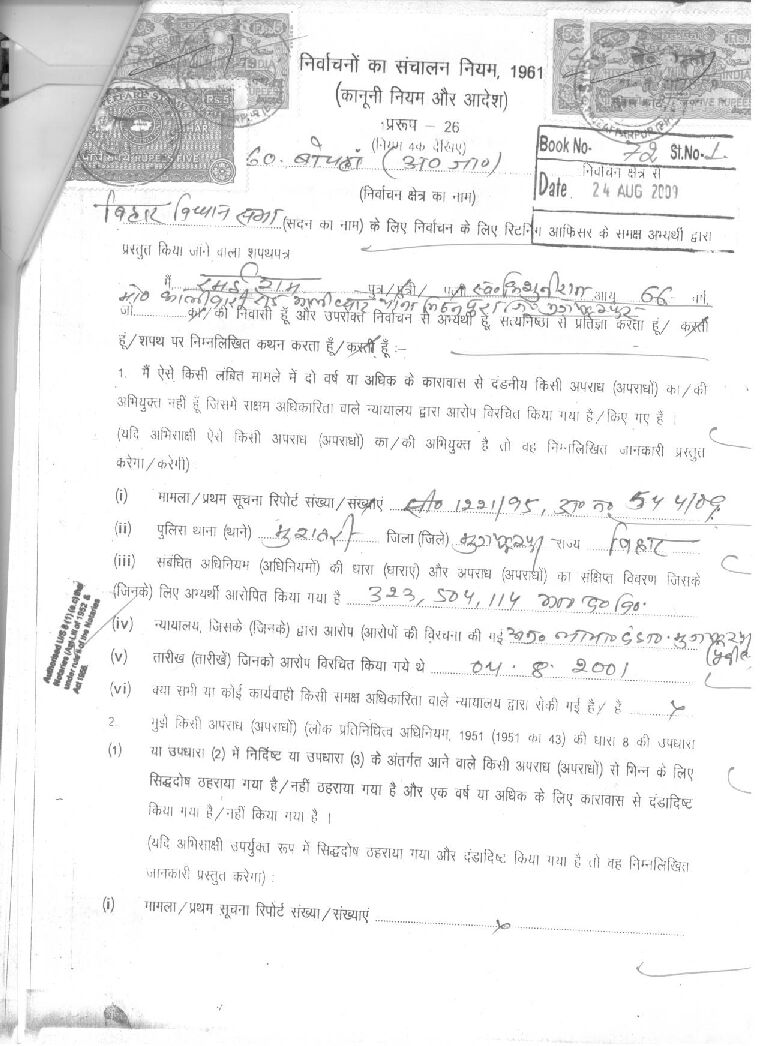 निर्वाचनों का संचालन नियम, 1961
(कानूनी नियम और आदेश)
प्ररूप - 26
(नियम 4क देखिए)
60. बोचहां (अ० जा०)
(निर्वाचन क्षेत्र का नाम)
Book No- 72 Sl.No-1
निर्वाचन क्षेत्र से
Date 24 AUG 2009
बिहार विधान सभा (सदन का नाम) के लिए निर्वाचन के लिए रिटर्निंग आफिसर के समक्ष अभ्यर्थी द्वारा
प्रस्तुत किया जाने वाला शपथपत्र
मैं रमई राम पुत्र/पुत्री/ पत्नी स्व० आयु 66 वर्ष
जो का/की निवासी हूँ और उपरोक्त निर्वाचन से अभ्यर्थी हूँ, सत्यनिष्ठा से प्रतिज्ञा करता हूँ/ करती
हूँ/शपथ पर निम्नलिखित कथन करता हूँ/करती हूँ :-
1. मैं ऐसे किसी लंबित मामले में दो वर्ष या अधिक के कारावास से दंडनीय किसी अपराध (अपराधों) का/की
अभियुक्त नहीं हूँ जिसमे सक्षम अधिकारिता वाले न्यायालय द्वारा आरोप विरचित किया गया है/किए गए हैं ।
(यदि अभिसाक्षी ऐसे किसी अपराध (अपराधों) का/की अभियुक्त है तो वह निम्नलिखित जानकारी प्रस्तुत
करेगा/करेगी)
(i) मामला/प्रथम सूचना रिपोर्ट संख्या/संख्याएं सी० 1221/95,
(ii) पुलिस थाना (थाने) मुशहरी जिला (जिले) मुजफ्फरपुर राज्य बिहार
(iii) संबंधित अधिनियम (अधिनियमों) की धारा (धाराएं) और अपराध (अपराधों) का संक्षिप्त विवरण जिसके
(जिनके) लिए अभ्यर्थी आरोपित किया गया है 323, 504, 114 भा० द० वि०
(iv) न्यायालय, जिसके (जिनके) द्वारा आरोप (आरोपों की विरचना की गई
(v) तारीख (तारीखें) जिनको आरोप विरचित किया गये थे 04.8.2001
(vi) क्या सभी या कोई कार्यवाही किसी समक्ष अधिकारिता वाले न्यायालय द्वारा रोकी गई है/ है x
2. मुझे किसी अपराध (अपराधों) (लोक प्रतिनिधित्व अधिनियम, 1951 (1951 का 43) की धारा 8 की उपधारा
(1) या उपधारा (2) में निर्दिष्ट या उपधारा (3) के अंतर्गत आने वाले किसी अपराध (अपराधों) से भिन्न के लिए
सिद्धदोष ठहराया गया है/नहीं ठहराया गया है और एक वर्ष या अधिक के लिए कारावास से दंडादिष्ट
किया गया है/नहीं किया गया है ।
(यदि अभिसाक्षी उपर्युक्त रूप में सिद्धदोष ठहराया गया और दंडादिष्ट किया गया है तो वह निम्नलिखित
जानकारी प्रस्तुत करेगा) :
(i) मामला/प्रथम सूचना रिपोर्ट संख्या/संख्याएं x
Authorised U/S 8 (1) (e.n) the
Notaries (Act LIII of 1952 &
under rule 11 of the Notaries
Act 1956